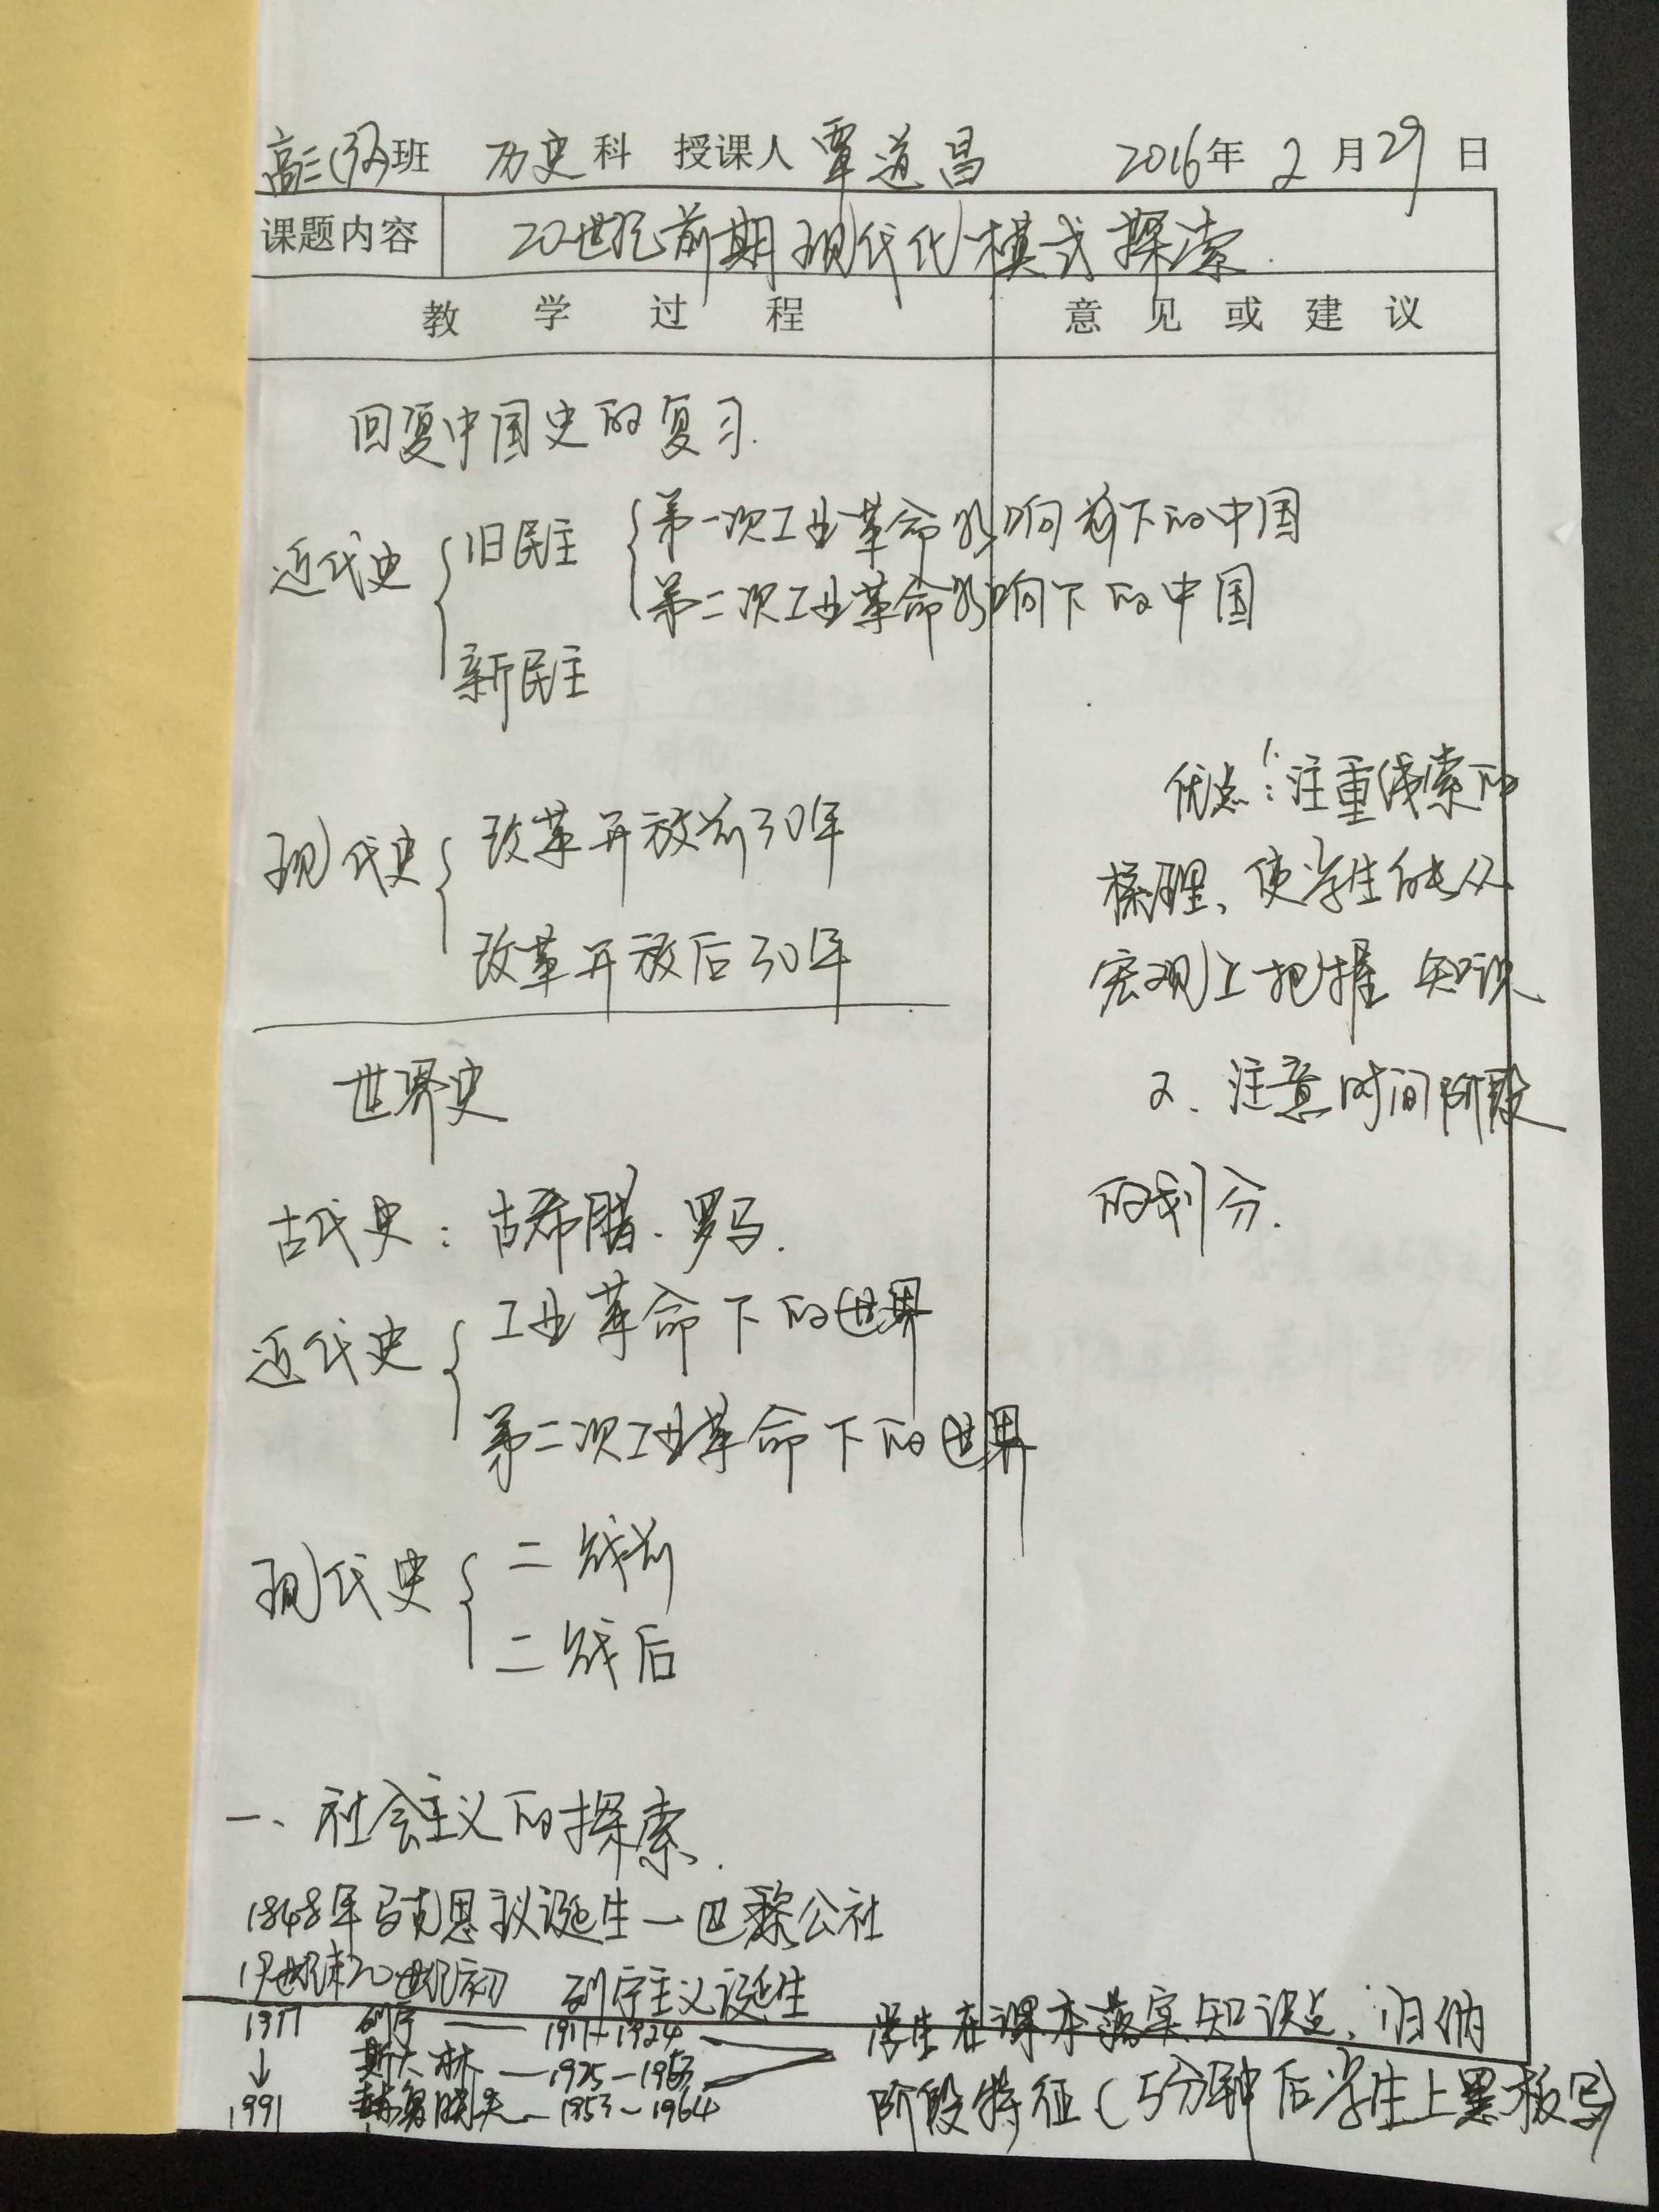 高三(32)班 历史科 授课人 覃道昌 2016年 2月29日
课题内容 20世纪前期现代化模式探索
教学过程 意见或建议
回复中国史的复习.
近代史 旧民主 第一次工业革命影响前下的中国
第二次工业革命影响下的中国
新民主
现代史 改革开放前30年
改革开放后30年
世界史
古代史：古希腊、罗马.
近代史 工业革命下的世界
第二次工业革命下的世界
现代史 二战前
二战后
一、社会主义的探索.
1848年马克思主义诞生—巴黎公社
19世纪末20世纪初 列宁主义诞生
1917 列宁 — 1917-1924
↓ 斯大林 — 1925-1953
1991 赫鲁晓夫 — 1953~1964
优点：1.注重线索的
梳理、使学生能从
宏观上把握知识
2、注意时间阶段
的划分.
学生在课本落实知识点，归纳
阶段特征（5分钟后学生上黑板写）